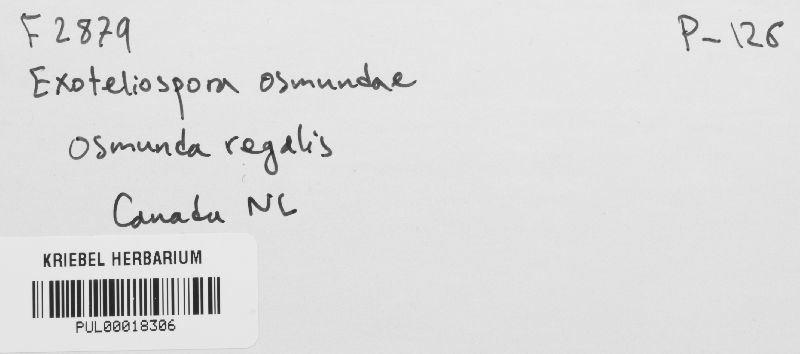 F 2879
P-126
Exoteliospora osmundae
Osmunda regalis
Canada NL
KRIEBEL HERBARIUM
PUL00018306